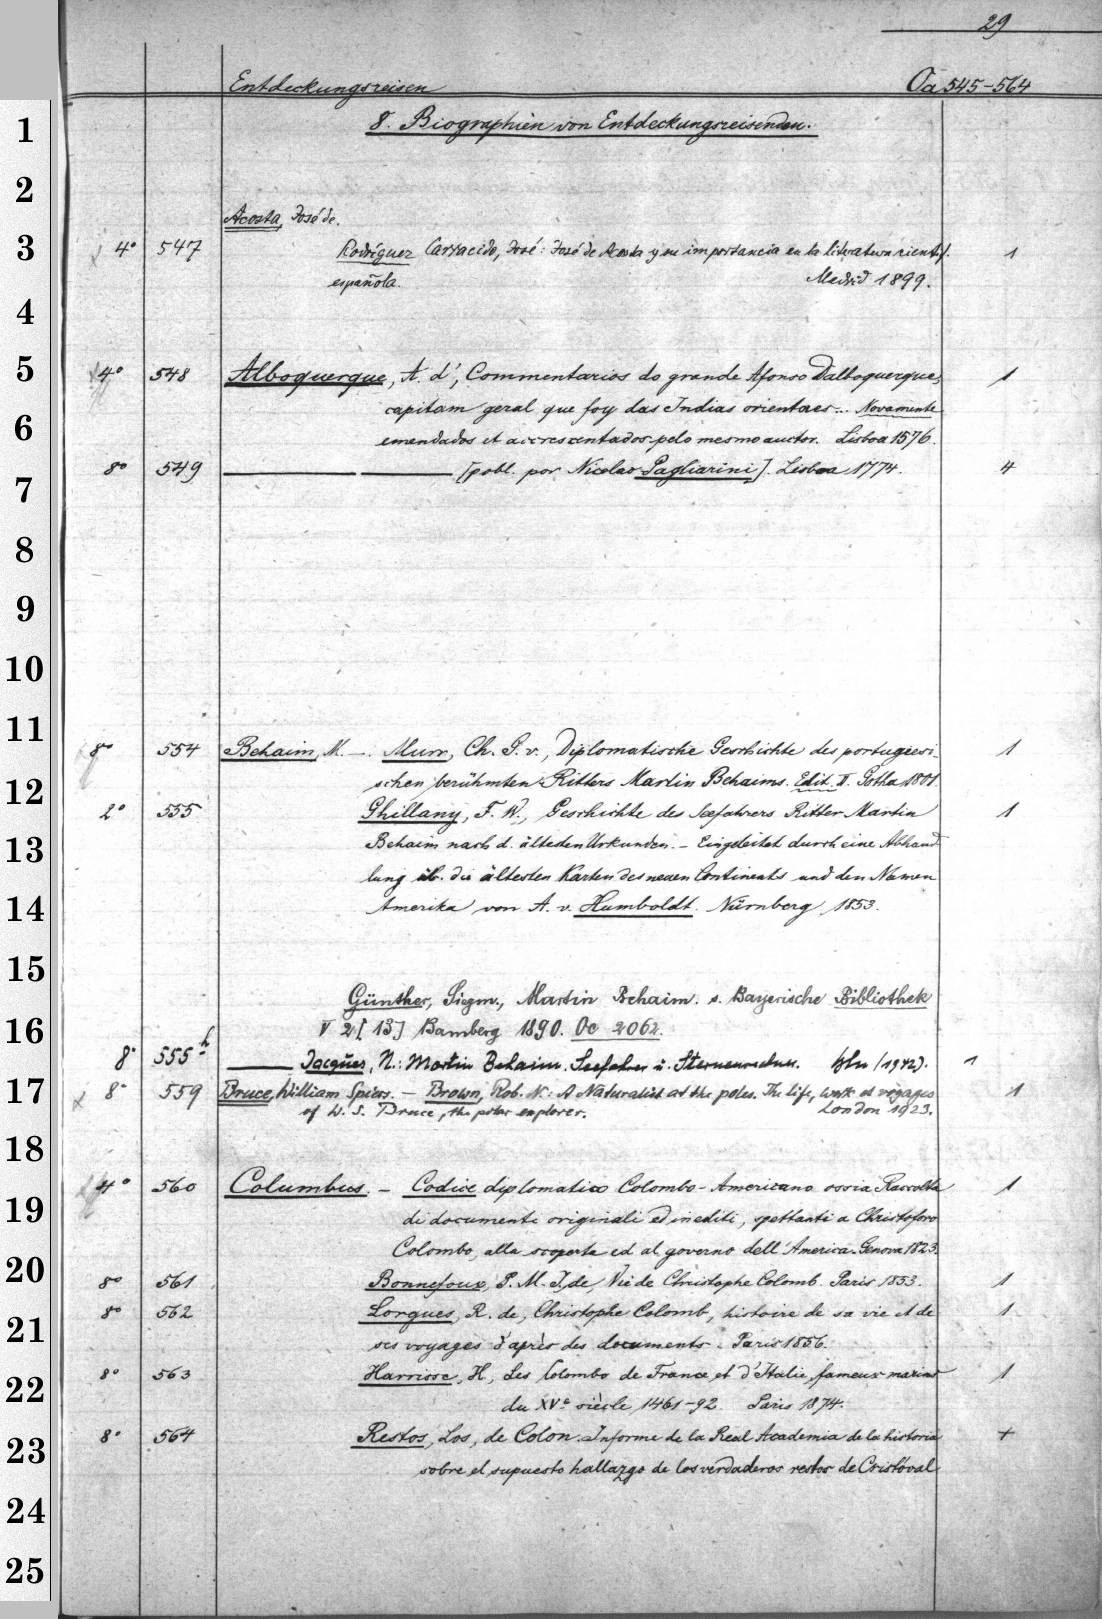 29
Entdeckungsreisen Oa 545-564
8. Biographien von Entdeckungsreisenden.
1
2
Acosta, José de.
3 4° 547 Rodríguez Carracido, José: José de Acosta y su importancia en la literatura cientif. 1
española. Madrid 1899.
4
5 4° 548 Alboquerque, A. d', Commentarios do grande Afonso Dalboquerque, 1
capitam geral que foy das Indias orientaes... Novamente
6 emendados et accrescentados pelo mesmo auctor. Lisboa 1576.
8° 549 [publ. por Nicolao Pagliarini]. Lisboa 1774. 4
7
8
9
10
11 8° 554 Behaim, M. -. Murr, Ch. G. v., Diplomatische Geschichte des portugiesi- 1
12 schen berühmten Ritters Martin Behaims. Edit. II. Gotha 1801.
2° 555 Ghillany, F. W., Geschichte des Seefahrers Ritter Martin 1
13 Behaim nach d. ältesten Urkunden. - Eingeleitet durch eine Abhand
lung üb. die ältesten Karten des neuen Continents und den Namen
14 Amerika von A. v. Humboldt. Nürnberg, 1853.
15
Günther, Siegm., Martin Behaim. s. Bayerische Bibliothek
16 V 2 [13] Bamberg 1890. Oc 2062.
8° 555 h Jacques, N.: Martin Behaim. Seefahrer u. Sternenrechner. Bln (1942). 1
17 8° 559 Bruce, William Spiers. - Brown, Rob. N.: A Naturalist at the poles. The life, work et voyages 1
of W. S. Bruce, the polar explorer. London 1923.
18
4° 560 Columbus. - Codice diplomatico Colombo-Americano ossia Raccolta 1
19 di documenti originali ed inediti, spettanti a Christoforo
Colombo, alla scoperta ed al governo dell'America. Genova 1823.
20 8° 561 Bonnefoux, P. M. J. de, Vie de Christophe Colomb. Paris 1853. 1
8° 562 Lorgues, R. de, Christophe Colomb, histoire de sa vie et de 1
21 ses voyages d'après des documents. Paris 1856.
8° 563 Harrisse, H., Les Colombo de France et d'Italie, fameux marins 1
22 du XVe siècle, 1461-92. Paris 1874.
8° 564 Restos, Los, de Colon. Informe de la Real Academia de la historia +
23 sobre el supuesto hallazgo de los verdaderos restos de Cristóval
24
25